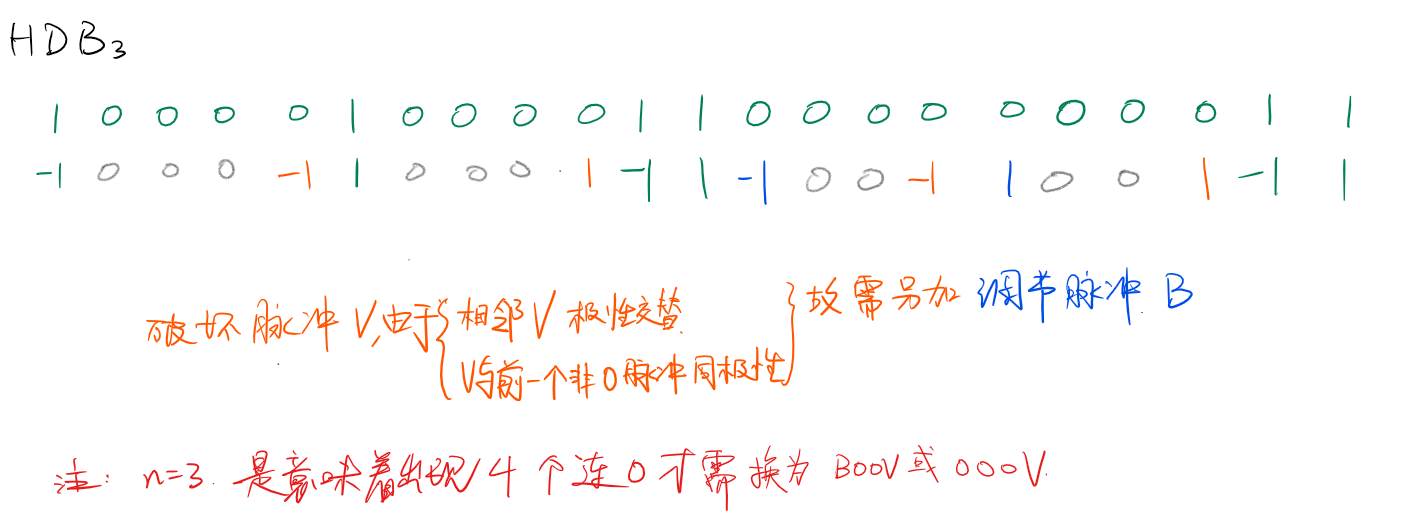 HDB₃
1 0 0 0 0 1 0 0 0 0 1 1 0 0 0 0 0 0 0 0 1 1
-1 0 0 0 -1 1 0 0 0 1 -1 1 -1 0 0 -1 1 0 0 1 -1 1
破坏脉冲V,由于{相邻V极性交替
V与前一个非0脉冲同极性}故需另加 调节脉冲B
注: n=3. 是意味着出现4个连0才需换为B00V或000V.